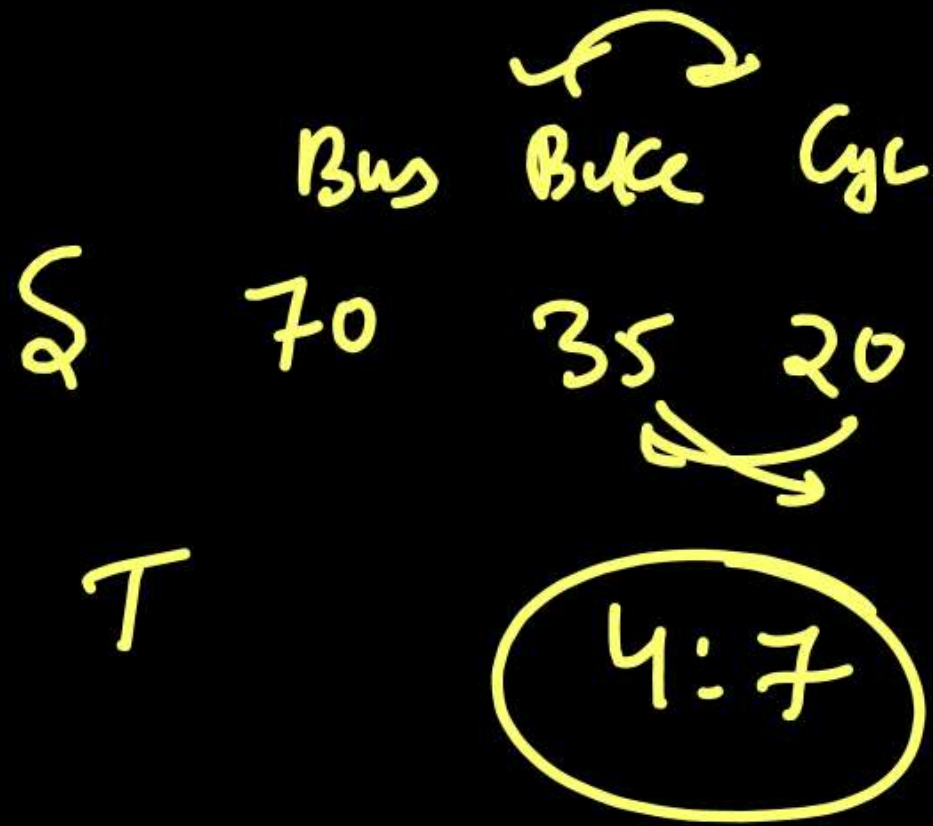 Bus Bike Cyc
S 70 35 20
T 4:7